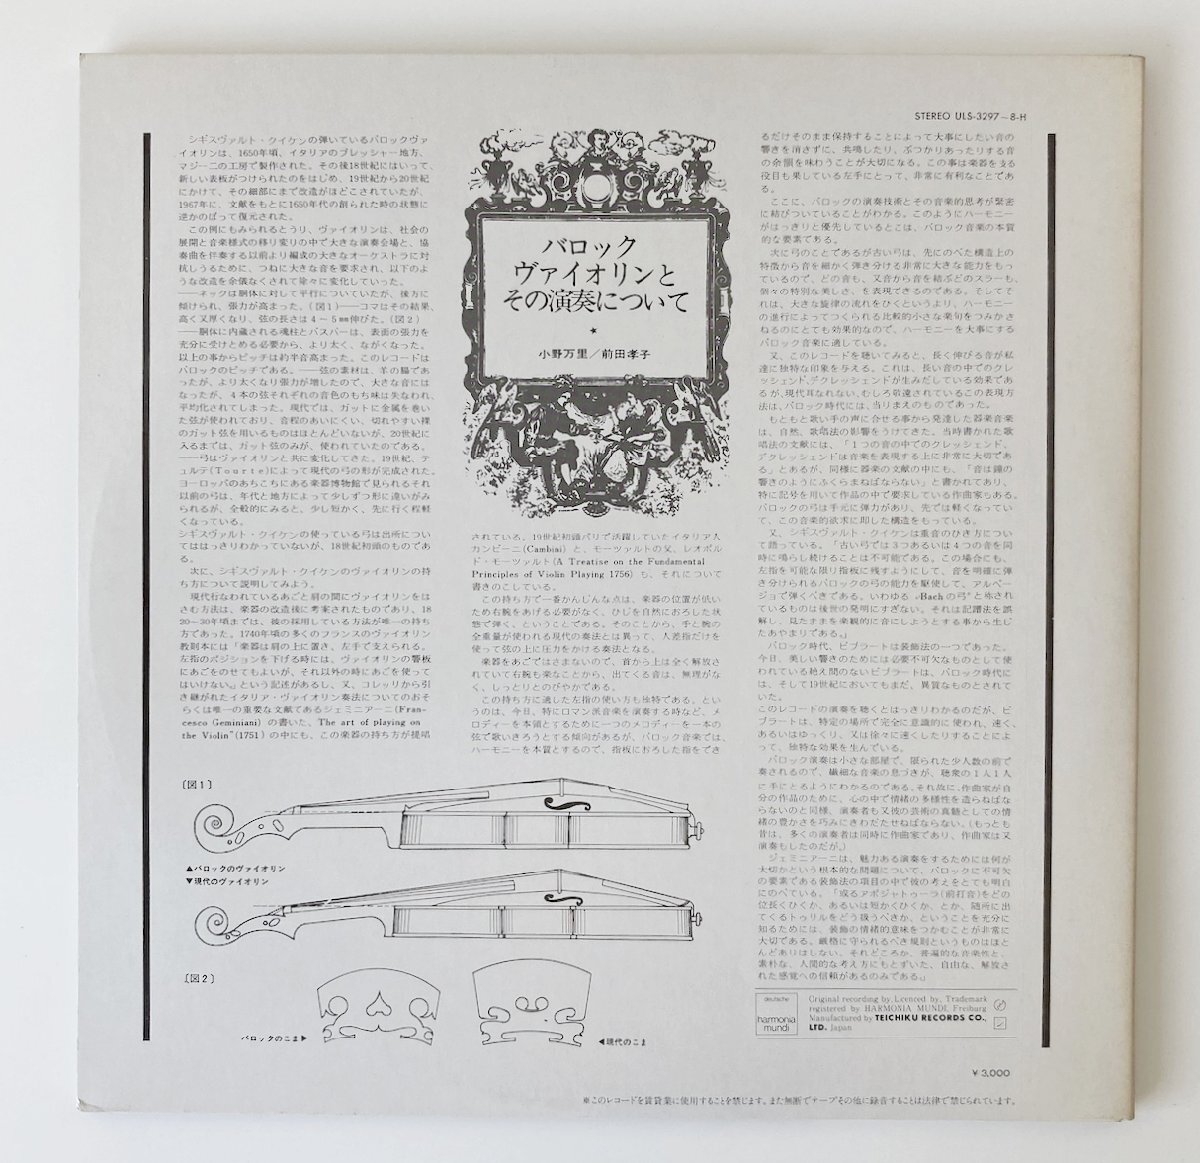 STEREO ULS-3297～8-H
シギスヴァルト・クイケンの弾いているバロックヴァ
イオリンは、1650年頃、イタリアのブレッシャー地方、
マジーニの工房で製作された。その後18世紀にはいって、
新しい表板がつけられたのをはじめ、19世紀から20世紀
にかけて、その細部にまで改造がほどこされていたが、
1967年に、文献をもとに1650年代の創られた時の状態に
逆かのぼって復元された。
この例にもみられるとうり、ヴァイオリンは、社会の
展開と音楽様式の移り変りの中で大きな演奏会場と、協
奏曲を伴奏する以前より編成の大きなオーケストラに対
抗しうるために、つねに大きな音を要求され、以下のよ
うな改造を余儀なくされて徐々に変化していった。
──ネックは胴体に対して平行についていたが、後方に
傾けられ、張力が高まった。(図1)──コマはその結果、
高く又厚くなり、弦の長さは4～5㎜伸びた。(図2)
──胴体に内蔵される魂柱とバスバーは、表面の張力を
充分に受けとめる必要から、より太く、ながくなった。
以上の事からピッチは約半音高まった。このレコードは
バロックのピッチである。──弦の素材は、羊の腸であ
ったが、より太くなり張力が増したので、大きな音には
なったが、4本の弦それぞれの音色のもち味は失なわれ、
平均化されてしまった。現代では、ガットに金属を巻い
た弦が使われており、音程のあいにくい、切れやすい裸
のガット弦を用いるものはほとんどいないが、20世紀に
入るまでは、ガット弦のみが、使われていたのである。
──弓はヴァイオリンと共に変化してきた。19世紀、テ
ュルテ(Tourte)によって現代の弓の形が完成された。
ヨーロッパのあちこちにある楽器博物館で見られるそれ
以前の弓は、年代と地方によって少しずつ形に違いがみ
られるが、全般的にみると、少し短かく、先に行く程軽
くなっている。
シギスヴァルト・クイケンの使っている弓は出所につい
てははっきりわかっていないが、18世紀初頭のものであ
る。
次に、シギスヴァルト・クイケンのヴァイオリンの持
ち方について説明してみよう。
現代行なわれているあごと肩の間にヴァイオリンをは
さむ方法は、楽器の改造後に考案されたものであり、18
20～30年頃までは、彼の採用している方法が唯一の持ち
方であった。1740年頃の多くのフランスのヴァイオリン
教則本には「楽器は肩の上に置き、左手で支えられる。
左指のポジションを下げる時には、ヴァイオリンの響板
にあごをのせてもよいが、それ以外の時にあごを使って
はいけない。」という記述があるし、又、コレッリから引
き継がれたイタリア・ヴァイオリン奏法についてのおそ
らくは唯一の重要な文献であるジェミニアーニ(Fran-
cesco Geminiani)の書いた、The art of playing on
the Violin"(1751)の中にも、この楽器の持ち方が提唱
バロック
ヴァイオリンと
その演奏について
★
小野万里／前田孝子
されている。19世紀初頭パリで活躍していたイタリア人
カンビーニ(Cambiai)と、モーツァルトの父、レオポル
ド・モーツァルト(A Treatise on the Fundamental
Principles of Violin Playing 1756)も、それについて
書きのこしている。
この持ち方で一番かんじんな点は、楽器の位置が低い
ため右腕をあげる必要がなく、ひじを自然におろした状
態で弾く、ということである。そのことから、手と腕の
全重量が使われる現代の奏法とは異って、人差指だけを
使って弦の上に圧力をかける奏法となる。
楽器をあごではさまないので、首から上は全く解放さ
れていて右腕も楽なことから、出てくる音は、無理がな
く、しっとりとのびやかである。
この持ち方に適した左指の使い方も独特である。とい
うのは、今日、特にロマン派音楽を演奏する時など、メ
ロディーを本領とするために一つのメロディーを一本の
弦で歌いきろうとする傾向があるが、バロック音楽では、
ハーモニーを本質とするので、指板におろした指をでき
るだけそのまま保持することによって大事にしたい音の
響きを消さずに、共鳴したり、ぶつかりあったりする音
の余韻を味わうことが大切になる。この事は楽器を支る
役目も果している左手にとって、非常に有利なことであ
る。
ここに、バロックの演奏技術とその音楽的思考が緊密
に結びついていることがわかる。このようにハーモニー
がはっきりと優先しているとこは、バロック音楽の本質
的な要素である。
次に弓のことであるが古い弓は、先にのべた構造上の
特徴から音を細かく弾き分ける非常に大きな能力をもっ
ているので、どの音も、又音から音を結ぶどのスラーも、
個々の特別な美しさ、を表現できるのである。そしてそ
れは、大きな旋律の流れをひくというより、ハーモニー
の進行によってつくられる比較的小さな楽句をつみかさ
ねるのにとても効果的なので、ハーモニーを大事にする
バロック音楽に適している。
又、このレコードを聴いてみると、長く伸びる音が私
達に独特な印象を与える。これは、長い音の中でのクレ
ッシェンド、デクレッシェンドが生みだしている効果であ
るが、現代耳なれない、むしろ敬遠されているこの表現方
法は、バロック時代には、当りまえのものであった。
もともと歌い手の声に合せる事から発達した器楽音楽
は、自然、歌唱法の影響をうけてきた。当時書かれた歌
唱法の文献には、「1つの音の中でのクレッシェンド、
デクレッシェンドは音楽を表現する上に非常に大切であ
る」とあるが、同様に器楽の文献の中にも、「音は鐘の
響きのようにふくらまねばならない」と書かれてあり、
特に記号を用いて作品の中で要求している作曲家もある。
バロックの弓は手元に弾力があり、先では軽くなってい
て、この音楽的欲求に即した構造をもっている。
又、シギスヴァルト・クイケンは重音のひき方につい
て語っている。「古い弓では3つあるいは4つの音を同
時に鳴らし続けることは不可能である。この場合にも、
左指を可能な限り指板に残すようにして、音を明確に弾
き分けられるバロックの弓の能力を駆使して、アルペー
ジョで弾くべきである。いわゆる“Bachの弓”と称され
ているものは後世の発明にすぎない。それは記譜法を誤
解し、見たままを楽観的に音にしようとする事から生じ
たあやまりである。」
バロック時代、ビブラートは装飾法の一つであった。
今日、美しい響きのためには必要不可欠なものとして使
われている絶え間のないビブラートは、バロック時代に
は、そして19世紀においてもまだ、異質なものとされて
いた。
このレコードの演奏を聴くとはっきりわかるのだが、ビ
ブラートは、特定の場所で完全に意識的に使われ、速く、
あるいはゆっくり、又は徐々に速くしたりすることによ
って、独特な効果を生んでいる。
バロック演奏は小さな部屋で、限られた少人数の前で
奏されるので、繊細な音楽の息づきが、聴衆の1人1人
に手にとるようにわかるのである。それ故に、作曲家が自
分の作品のために、心の中で情緒の多様性を造らねばな
らないのと同様、演奏者も又彼の芸術の真髄としての情
緒の豊かさを巧みにきわだたせねばならない。(もっとも
昔は、多くの演奏者は同時に作曲家であり、作曲家は又
演奏もしたのだが。)
ジェミニアーニは、魅力ある演奏をするためには何が
大切かという根本的な問題について、バロックに不可欠
の要素である装飾法の項目の中で彼の考えをとても明白
にのべている。「或るアポジャトゥーラ(前打音)をどの
位長くひくか、あるいは短かくひくか、とか、随所に出
てくるトゥリルをどう扱うべきか、ということを充分に
知るためには、装飾の情緒的意味をつかむことが非常に
大切である。厳格に守られるべき規則というものはほと
んどありはしない。それどころか、普遍的な音楽性と、
素朴な、人間的な考え方にもとずいた、自由な、解放さ
れた感覚への信頼があるのみである。」
〔図1〕
▲バロックのヴァイオリン
▼現代のヴァイオリン
〔図2〕
バロックのこま▶
◀現代のこま
deutsche
harmonia
mundi
Original recording by, Licenced by, Trademark
registered by HARMONIA MUNDI, Freiburg
Manufactured by TEICHIKU RECORDS CO.,
LTD. Japan
￥3,000
※このレコードを賃貸業に使用することを禁じます。また無断でテープその他に録音することは法律で禁じられています。